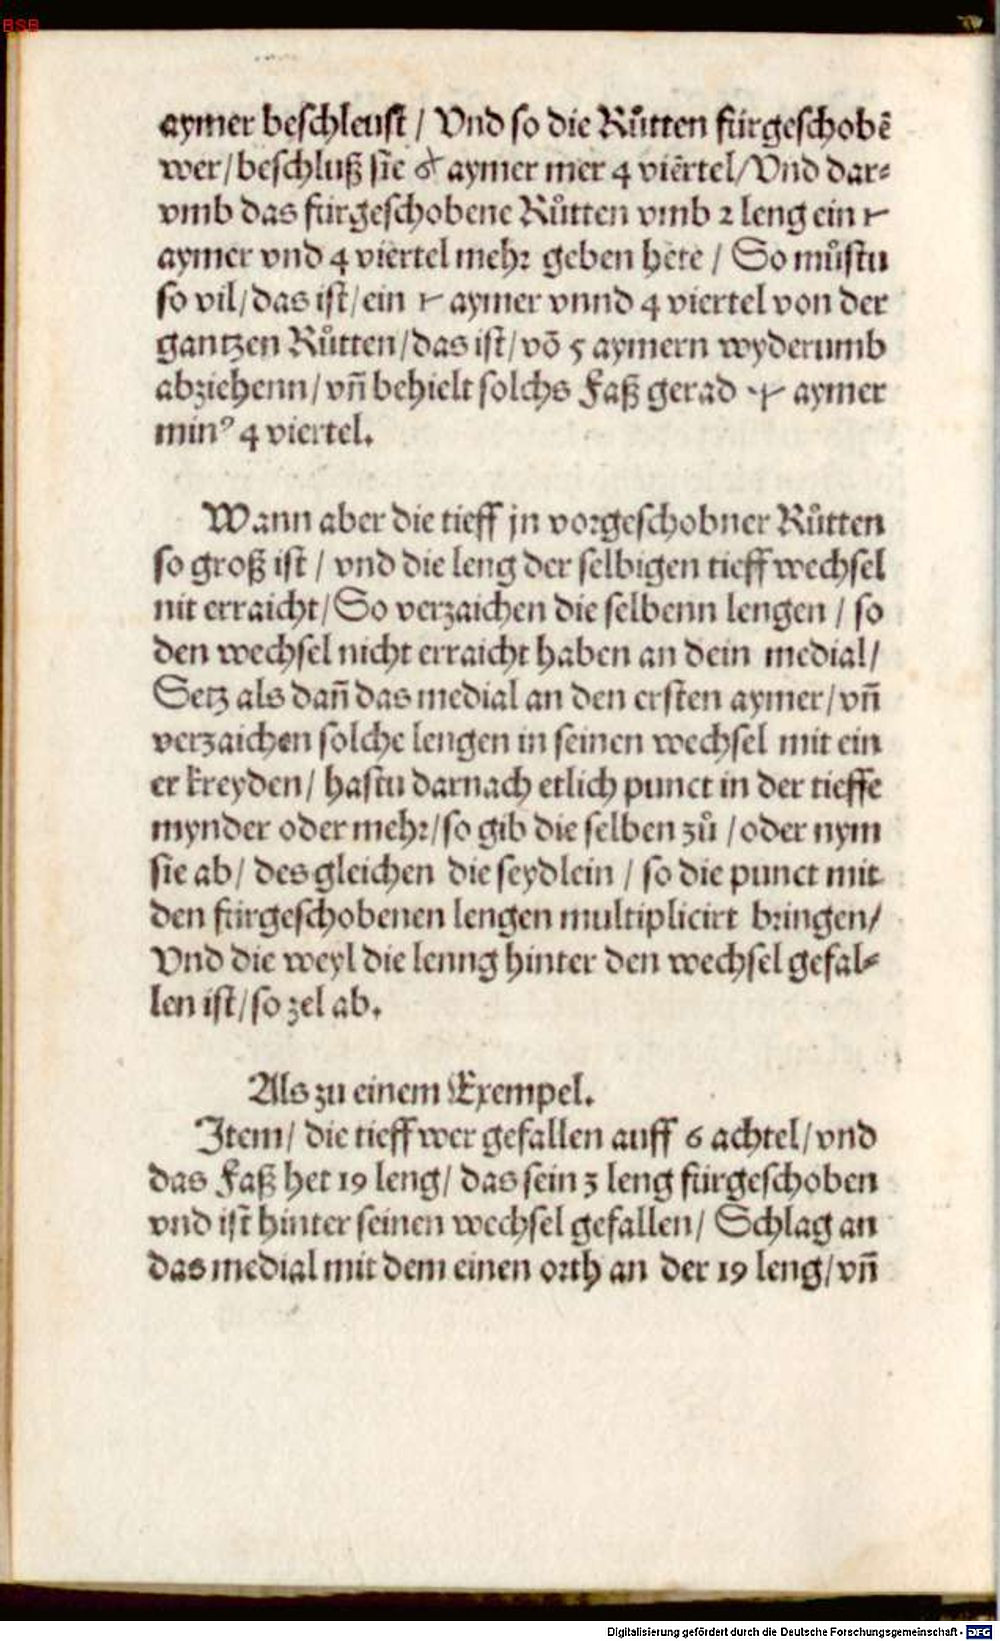 BSB
aymer beschleust / Vnd so die Růtten fürgeschobẽ
wer / beschluß sie aymer mer 4 viertel / Vnd dar⸗
vmb das fürgeschobene Růtten vmb 2 leng ein
aymer vnd 4 viertel mehr geben hete / So můstu
so vil / das ist / ein aymer vnnd 4 viertel von der
gantzen Růtten / das ist / võ 5 aymern wyderumb
abziehenn / vñ behielt solchs Faß gerad aymer
minꝰ 4 viertel.
Wann aber die tieff jn vorgeschobner Růtten
so groß ist / vnd die leng der selbigen tieff wechsel
nit erraicht / So verzaichen die selbenn lengen / so
den wechsel nicht erraicht haben an dein medial /
Setz als dañ das medial an den ersten aymer / vñ
verzaichen solche lengen in seinen wechsel mit ein
er kreyden / hastu darnach etlich punct in der tieffe
mynder oder mehr / so gib die selben zů / oder nym
sie ab / des gleichen die seydlein / so die punct mit
den fürgeschobenen lengen multiplicirt bringen /
Vnd die weyl die lenng hinter den wechsel gefal⸗
len ist / so zel ab.
Als zu einem Exempel.
Item / die tieff wer gefallen auff 6 achtel / vnd
das Faß het 19 leng / das sein 3 leng fürgeschoben
vnd ist hinter seinen wechsel gefallen / Schlag an
das medial mit dem einen orth an der 19 leng / vñ
Digitalisierung gefördert durch die Deutsche Forschungsgemeinschaft - DFG